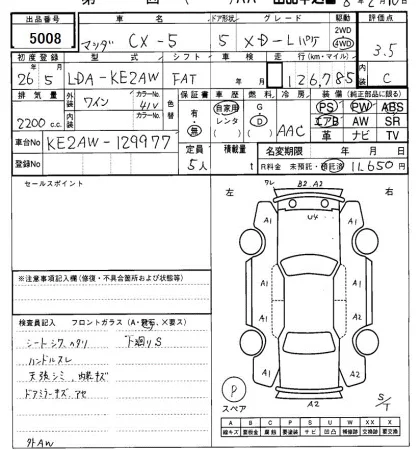 出品番号 車名 ドア形状 グレード 駆動 評価点
5008 マツダ CX-5 5 XD-Lパケ 2WD 4WD 3.5
初度登録 型式 シフト 車検 走行(km・マイル) 内装
26年5月 LDA-KE2AW FAT 年 月 126,785 C
排気量 外装 ワイン カラーNo. 41V 色替 保証書 車歴 燃料 冷房 装備(純正部品に限る)
2200c.c. 内装 カラーNo. 有・無 自家用 レンタ ( ) G・D ( ) AAC PS PW ABS
エアB AW SR
革 ナビ TV
車台No KE2AW-129977 定員 5人 積載量 t 名変期限 年 月 日
登録No R料金 未預託・預託済 11,650円
セールスポイント
左 右
ワレ B2 A2
U4
A1 A1
A1 A2
A1 A2
A2
※注意事項記入欄(修復・不具合箇所および状態等)
検査員記入 フロントガラス(A・飛石、×要ス)
シートシワ、ヘタリ 下廻りS
ハンドルスレ
天張シミ、内張キズ
ドアミラーキズ、アセ
外AW
P
スペア
S/T
A B C P S U W X XX
線キズ 要板金 腐蝕 要塗装 サビ 凹凸 補修跡 交換跡 要交換